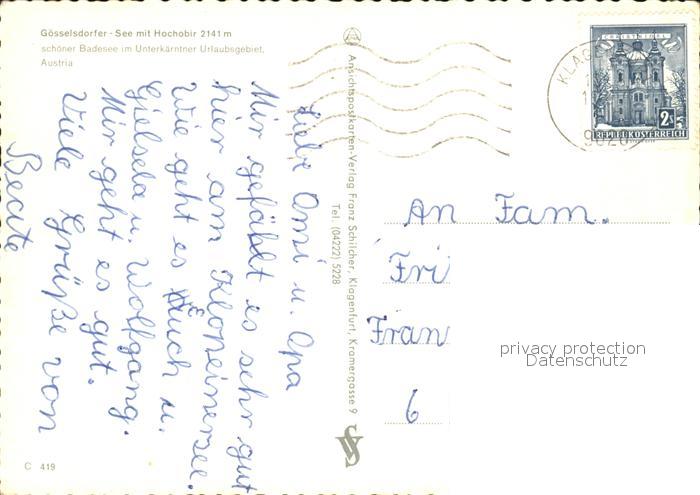 Gösselsdorfer-See mit Hochobir 2141 m
schöner Badesee im Unterkärntner Urlaubsgebiet,
Austria
Liebe Omi u. Opa
Mir gefählt es sehr gut
hier am Klopeinersee.
Wie geht es Euch u.
Gisela u. Wolfgang.
Mir geht es gut.
Viele Grüße von
Beate
C 419
Ansichtspostkarten-Verlag Franz Schilcher, Klagenfurt, Kramergasse 9
Tel. (04222) 5228
CHRISTKINDL
2S
REPUBLIK ÖSTERREICH
KLAG
9020
An Fam.
Fri
Fran
6
privacy protection
Datenschutz